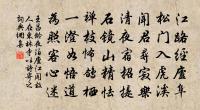 江路經廬阜
松門入虎溪
聞君尋寂樂
清夜宿招提
石鏡山精怯
禪枝怖鴿棲
一燈如悟道
為照客心迷
夜泊廬江聞故
人在東林寺以詩寄之
詞典網集